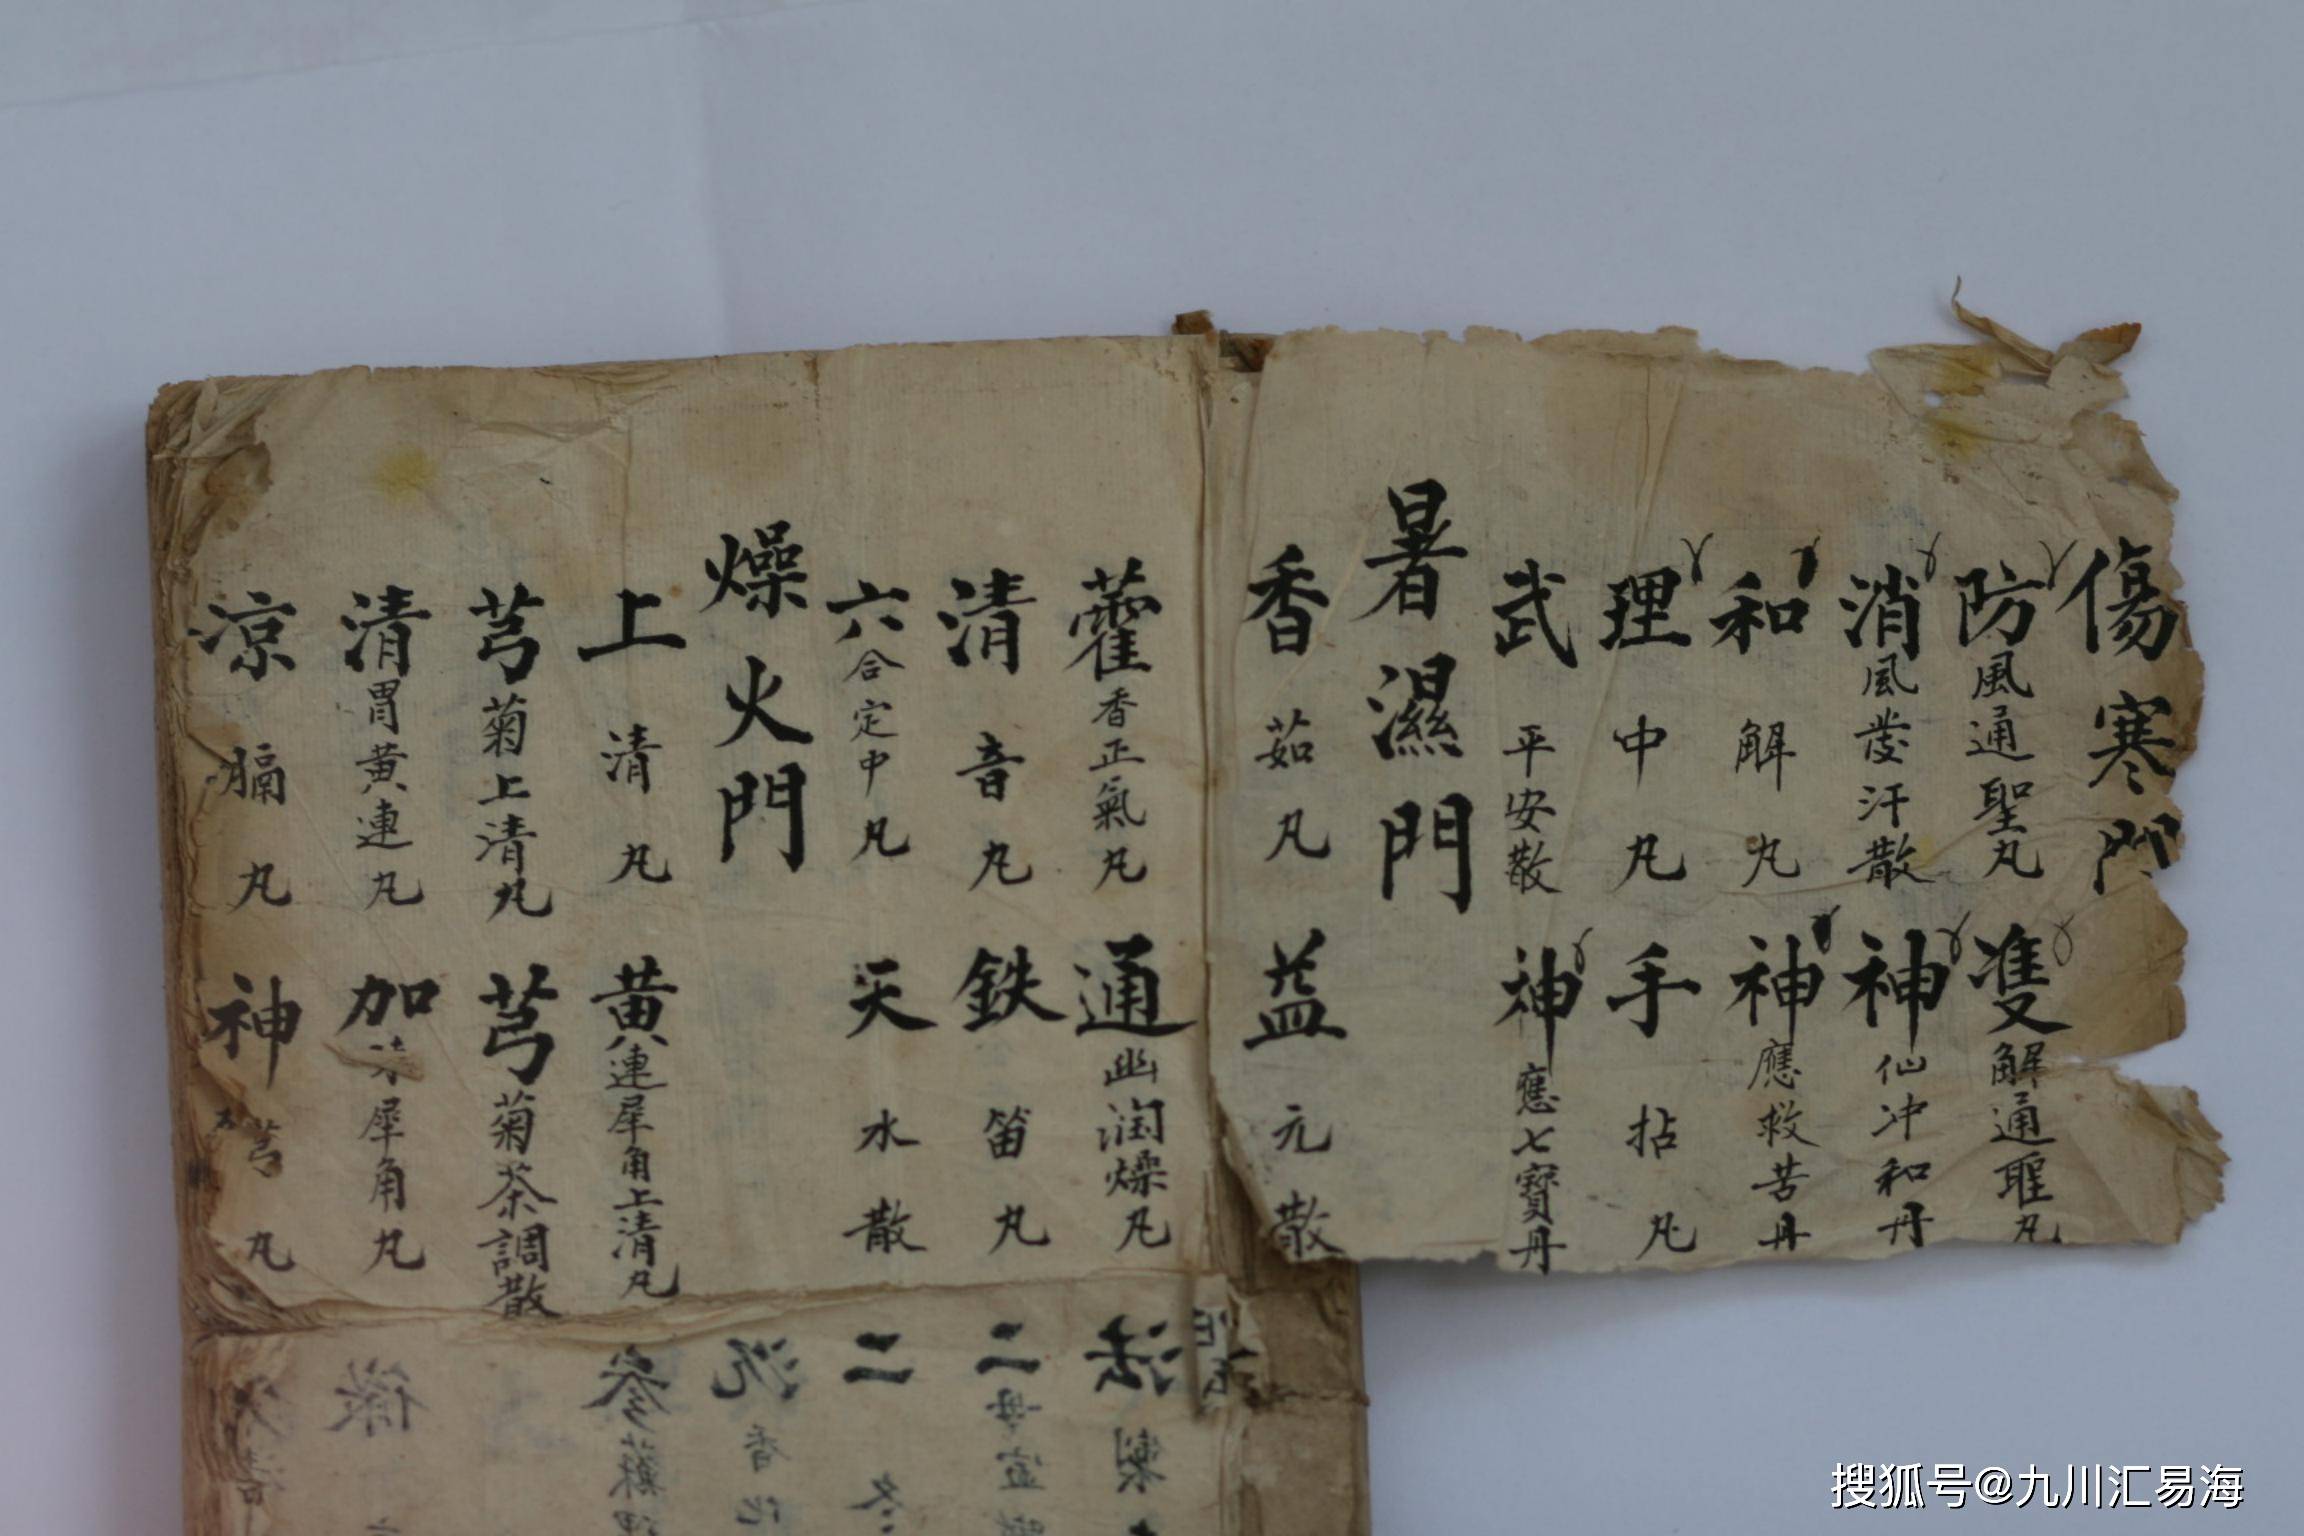 傷寒門
防風通聖丸
雙解通聖丸
消風發汗散
神仙冲和丹
和解丸
神應救苦丹
理中丸
手拈丸
武平安散
神應七寳丹
暑濕門
香茹丸
益元散
藿香正氣丸
通幽润燥丸
清音丸
鉄笛丸
六合定中丸
天水散
燥火門
上清丸
黄連犀角上清丸
芎菊上清丸
芎菊茶調散
清胃黄連丸
加味犀角丸
凉膈丸
神芎丸
二
二冬
搜狐号@九川汇易海